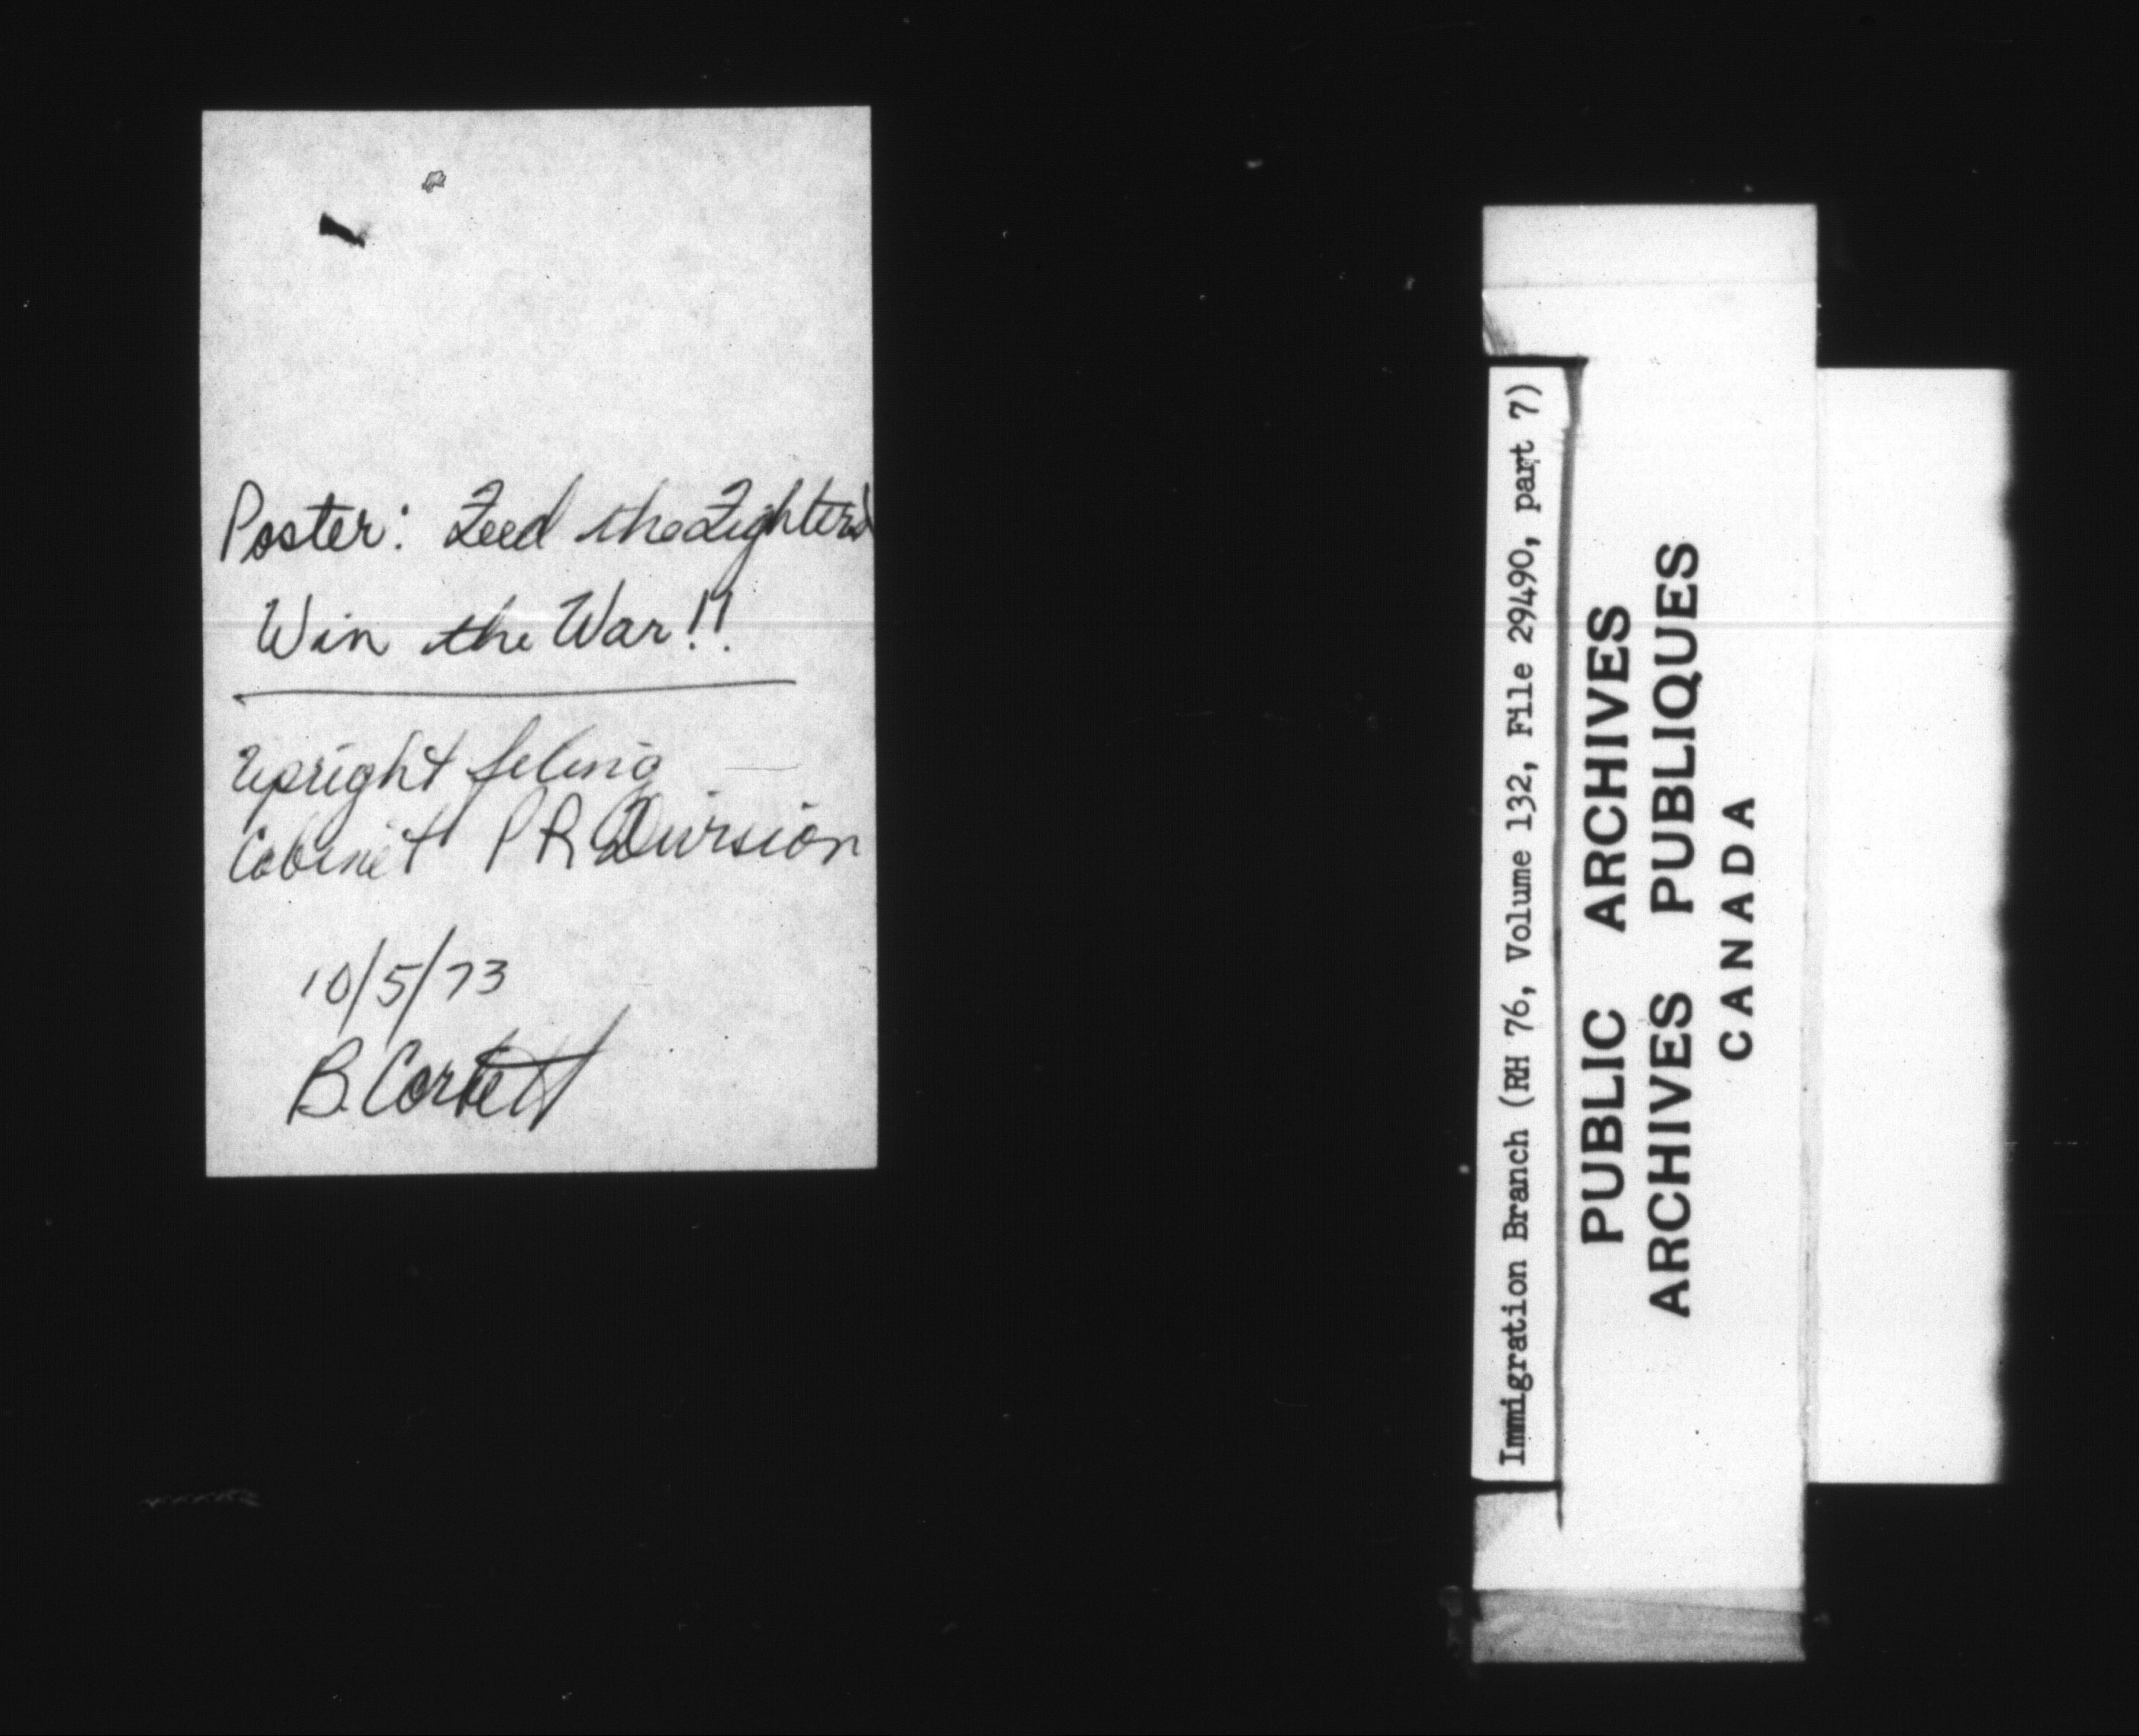 Poster: Feed the Fighters
Win the War!!
Upright filing
Cabinet PR Division
10/5/73
B. Corbett
Immigration Branch (RH 76, Volume 132, File 29490, part 7)
PUBLIC ARCHIVES
ARCHIVES PUBLIQUES
CANADA